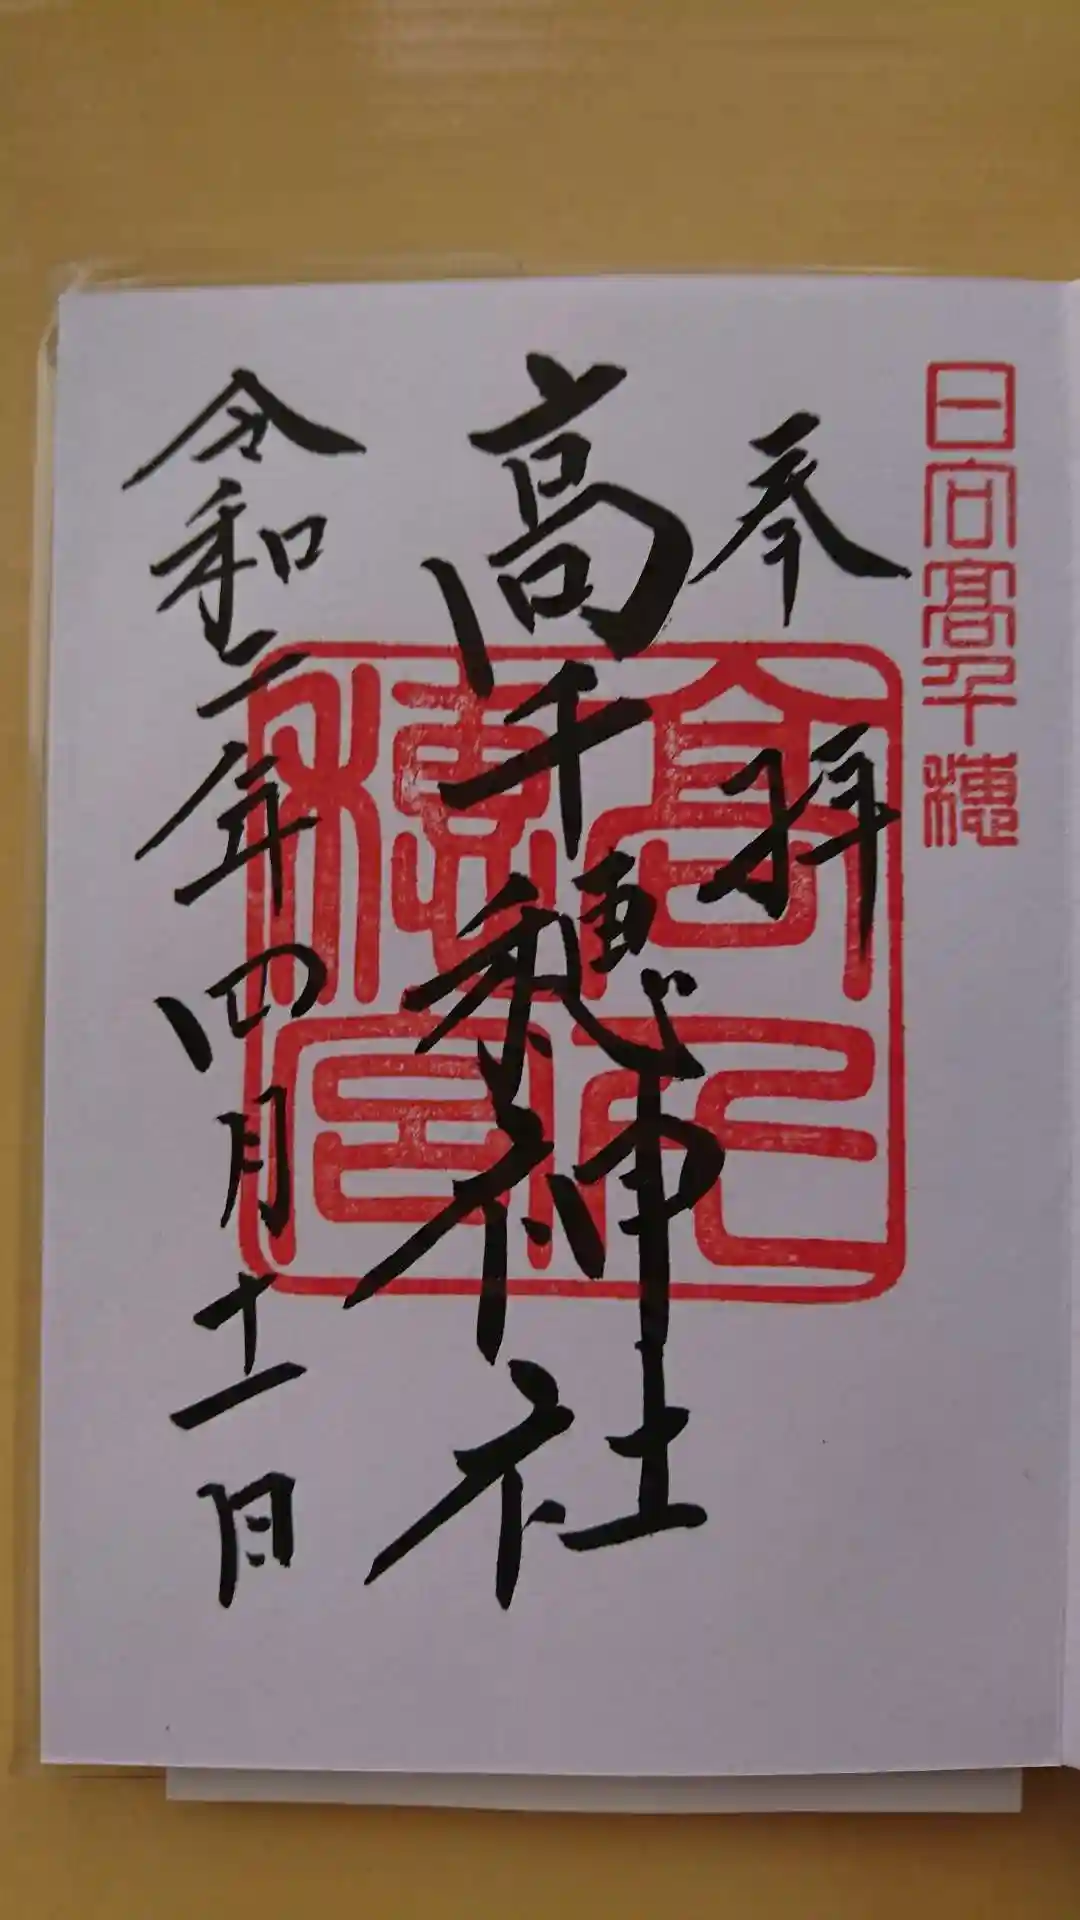 日向高千穂
奉拝
高千穂神社
令和二年四月十一日